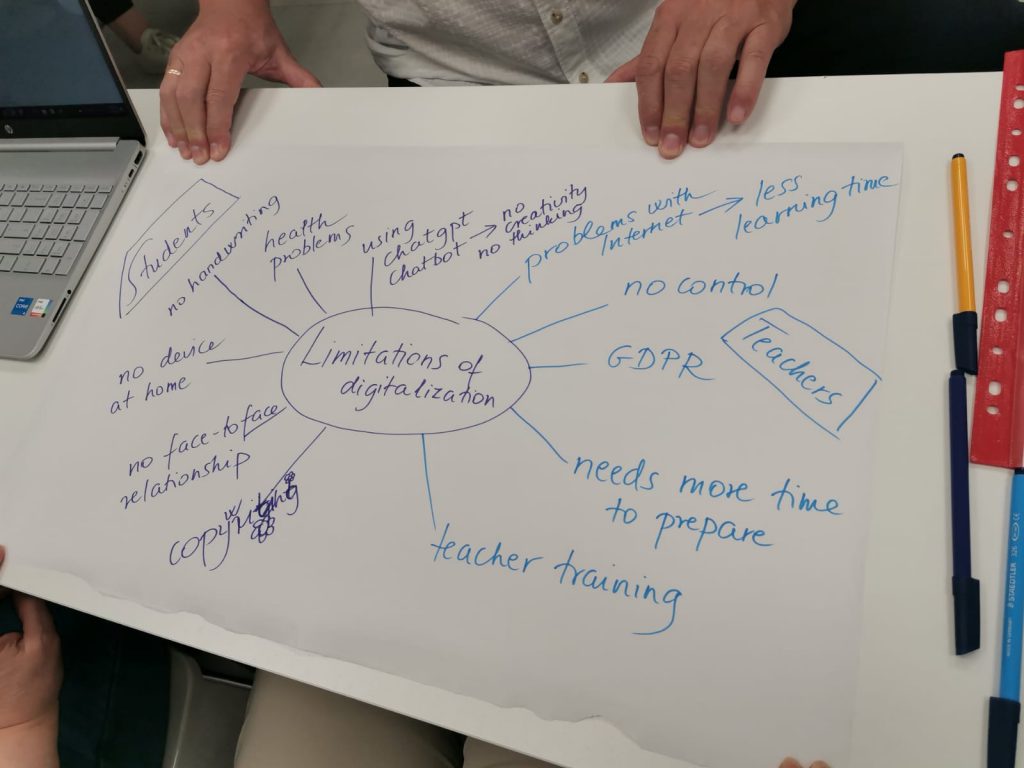 Students
no handwriting
health
problems
using
chatgpt
chatbot → no
creativity
no thinking
problems with
Internet → less
learning time
no control
Teachers
Limitations of
digitalization
GDPR
no device
at home
no face-to face
relationship
needs more time
to prepare
teacher training
STAEDTLER 326
hp
CORE